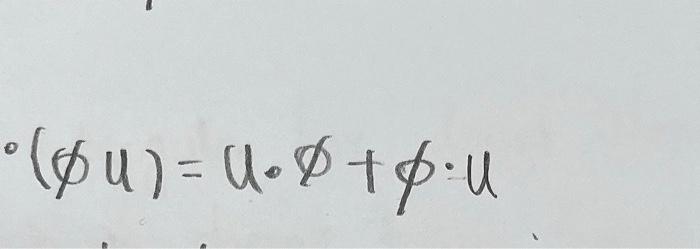 ∘(ϕu) = u·ϕ + ϕ·u